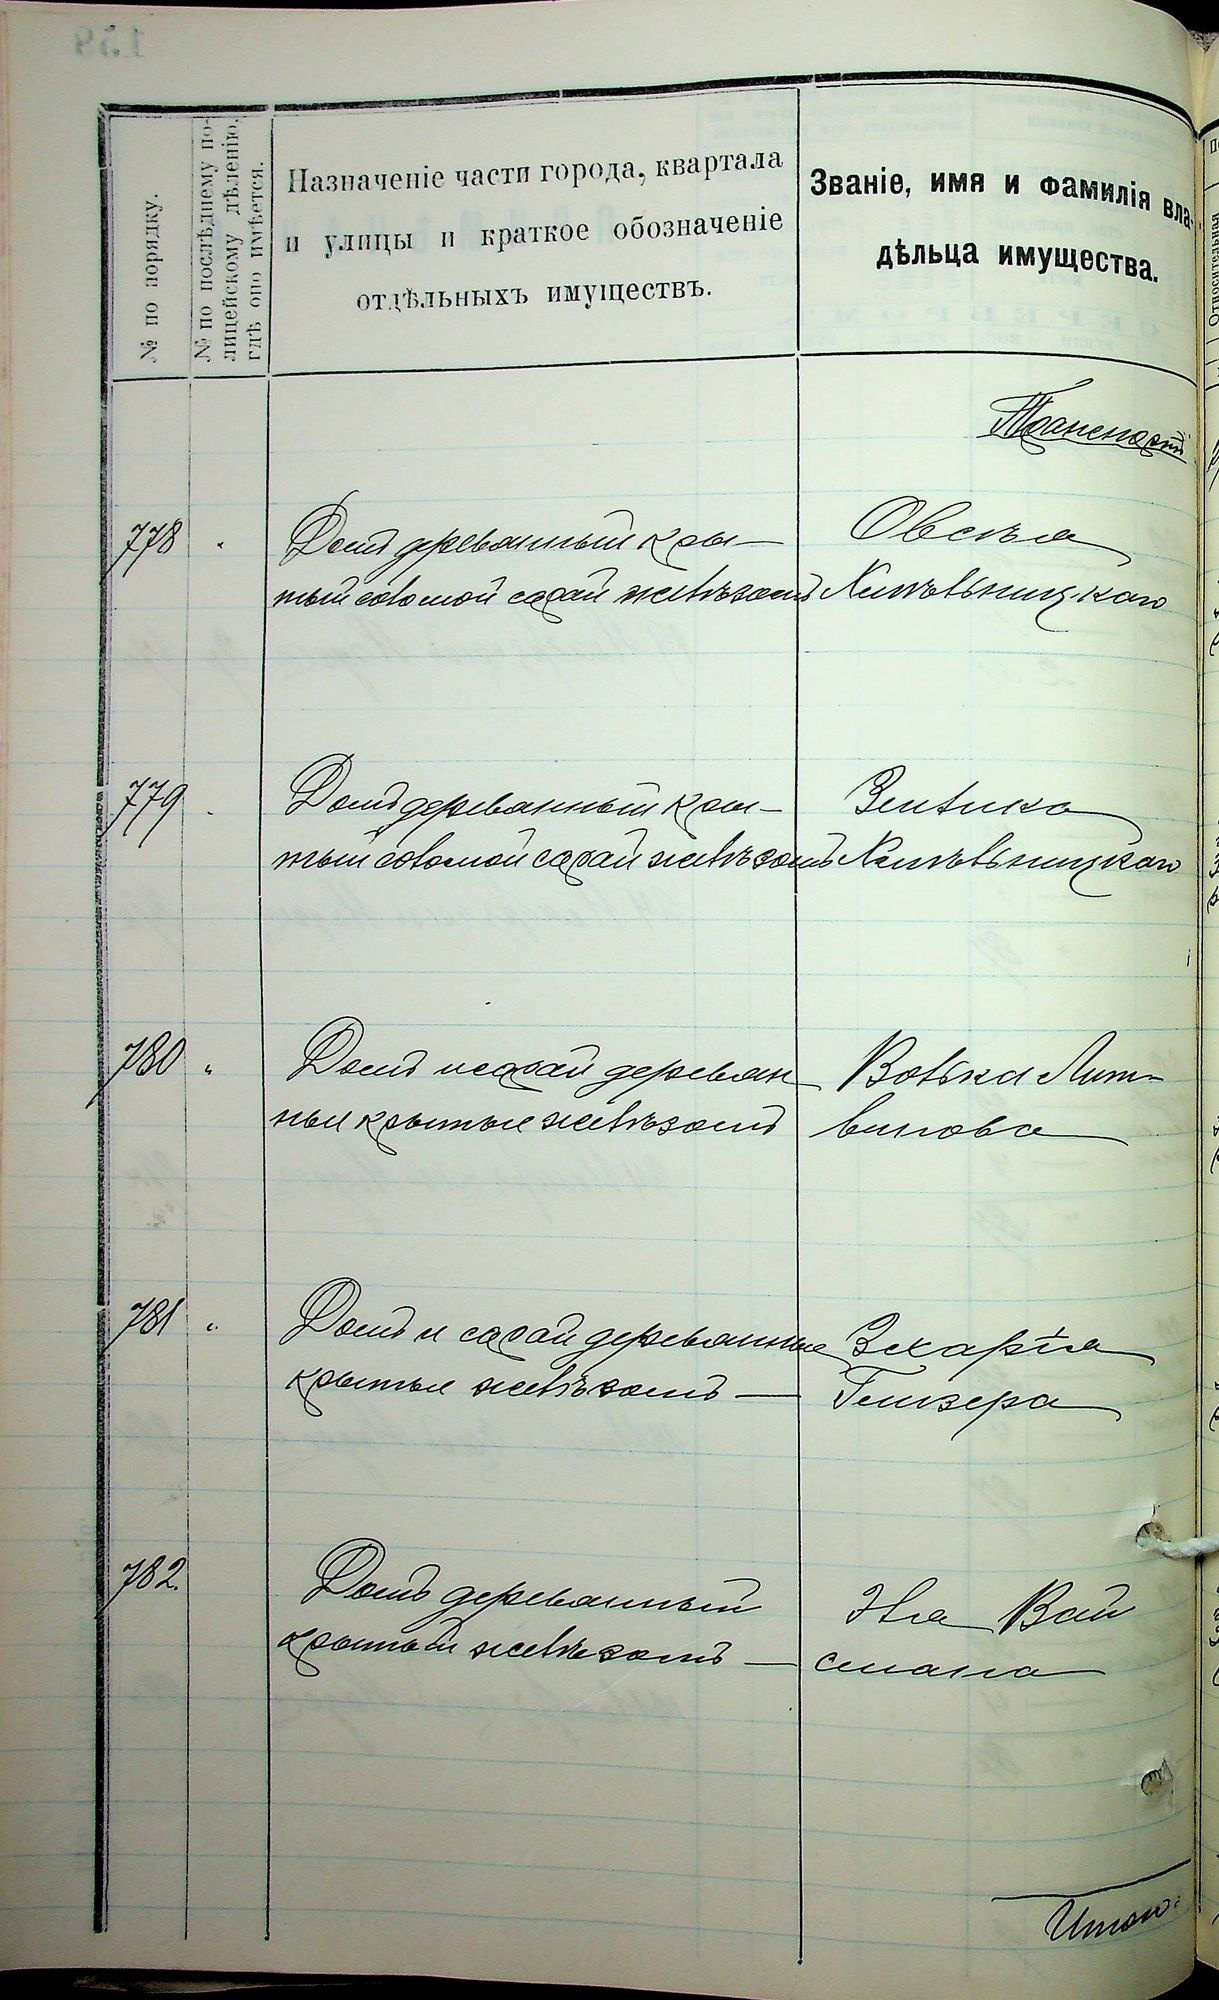 № по порядку.
№ по послѣднему по-
лицейскому дѣленію,
гдѣ оно имѣется.
Назначеніе части города, квартала
и улицы и краткое обозначеніе
отдѣльныхъ имуществъ.
Званіе, имя и фамилія вла-
дѣльца имущества.
Транспортъ
778 " Домъ деревянный кры-
тый соломой сарай желѣзомъ
Овсѣя
Хмѣльницкаго
779 " Домъ деревянный кры-
тый соломой сарай желѣзомъ
Зелика
Хмѣльницкаго
780 " Домъ и сарай деревян
ные крытые желѣзомъ
Волька Лит-
винова
781 " Домъ и сарай деревянные
крытые желѣзомъ —
Зхарія
Гензера
782. Домъ деревянный
крытый желѣзомъ —
Вай
смана
Итого: